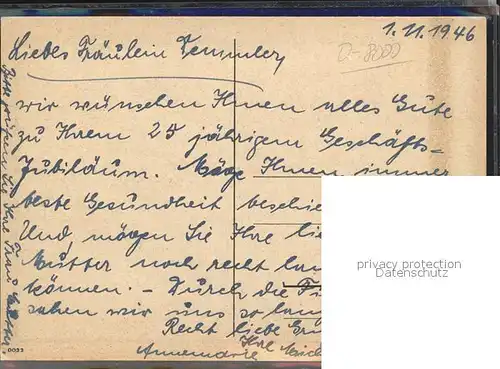 1. 11. 1946
Liebes Fräulein Temmler,
D-8000
wir wünschen Ihnen alles Gute
zu Ihrem 25 jährigem Geschäfts=
Jubiläum. Möge Ihnen immer
beste Gesundheit beschie
Und, mögen Sie Ihre lie
Mutter noch recht lan
können. – Durch die
sahen wir uns so lan
Recht liebe Grü
Ihre
Annemarie
Bitte grüßen Sie Ihre Frau Mutter.
0022
privacy protection
Datenschutz